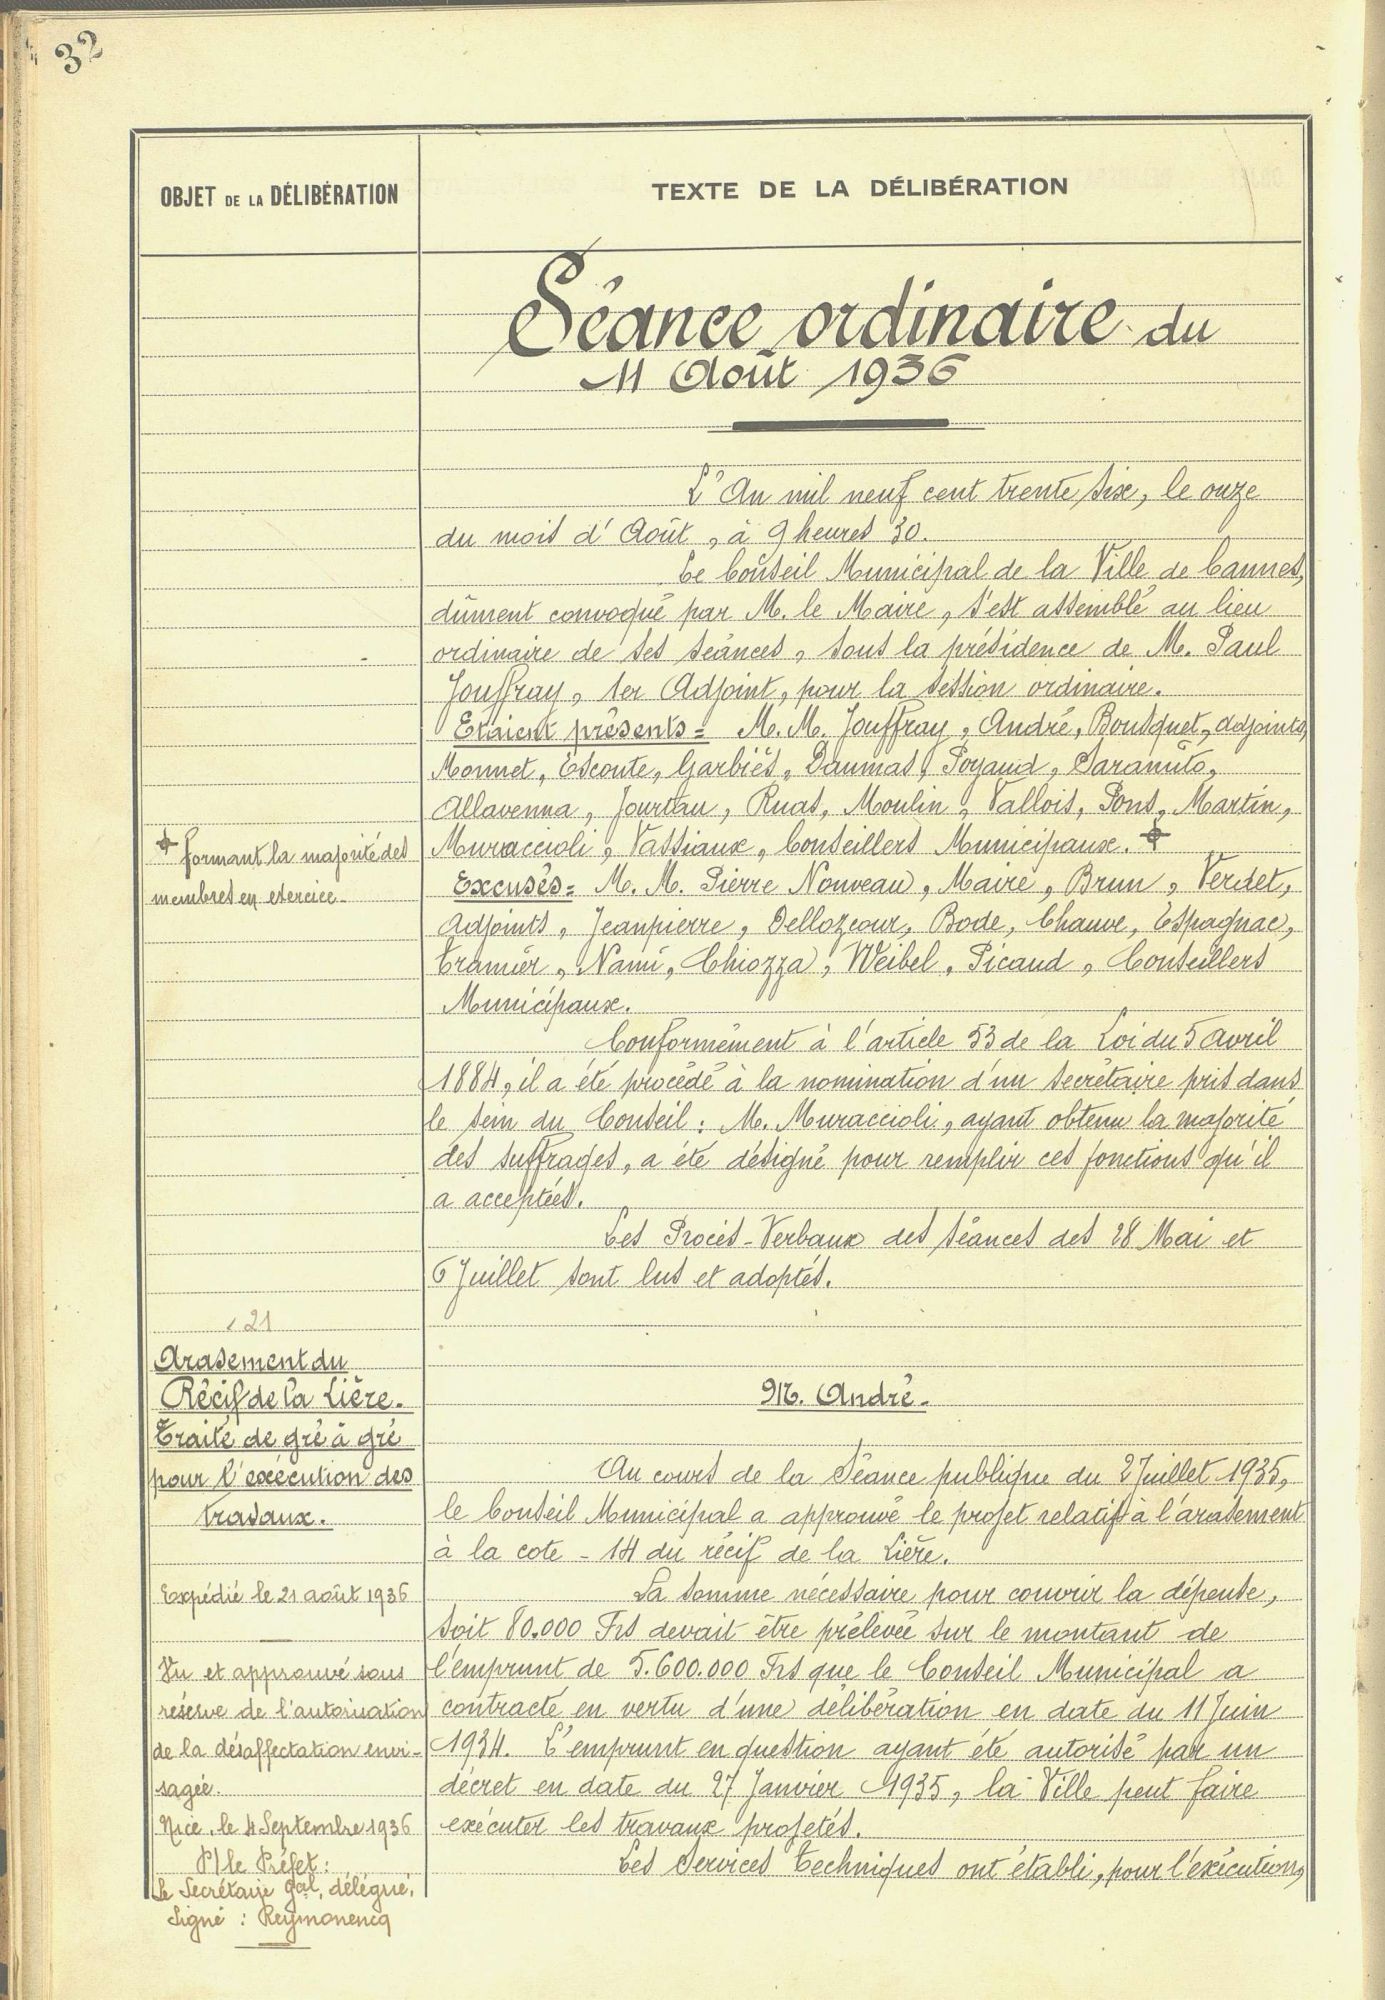 32
OBJET DE LA DÉLIBÉRATION
TEXTE DE LA DÉLIBÉRATION
Séance ordinaire du
11 Août 1936
L'An mil neuf cent trente six, le onze
du mois d'Août, à 9 heures 30.
Le Conseil Municipal de la Ville de Cannes,
dûment convoqué par M. le Maire, s'est assemblé au lieu
ordinaire de ses séances, sous la présidence de M. Paul
Jouffray, 1er Adjoint, pour la session ordinaire.
Etaient présents = M.M. Jouffray, André, Bousquet, adjoints,
Monnet, Esconte, Garbiès, Daumas, Poyaud, Saramito,
Allavenna, Jourdau, Ruas, Moulin, Vallois, Pons, Martin,
Muraccioli, Vassiaux, Conseillers Municipaux.
formant la majorité des
membres en exercice.
Excusés = M.M. Pierre Nouveau, Maire, Brun, Verdet,
Adjoints, Jeanpierre, Dellozcour, Bode, Chauve, Espagnac,
Cramier, Nami, Chiozza, Weibel, Picaud, Conseillers
Municipaux.
Conformément à l'article 53 de la Loi du 5 Avril
1884, il a été procédé à la nomination d'un secrétaire pris dans
le sein du Conseil : M. Muraccioli, ayant obtenu la majorité
des suffrages, a été désigné pour remplir ces fonctions qu'il
a acceptées.
Les Procès-Verbaux des séances des 28 Mai et
6 Juillet sont lus et adoptés.
21
Arasement du
Récif de la Lière.
Traité de gré à gré
pour l'exécution des
travaux.
Expédié le 21 août 1936
Vu et approuvé sous
réserve de l'autorisation
de la désaffectation envi-
sagée.
Nice, le 4 Septembre 1936
P/ le Préfet :
Le Secrétaire Gal, délégué,
Signé : Reymonencq
M. André.
Au cours de la Séance publique du 2 Juillet 1935,
le Conseil Municipal a approuvé le projet relatif à l'arasement
à la cote - 14 du récif de la Lière.
La somme nécessaire pour couvrir la dépense,
soit 80.000 Frs devait être prélevée sur le montant de
l'emprunt de 5.600.000 Frs que le Conseil Municipal a
contracté en vertu d'une délibération en date du 11 Juin
1934. L'emprunt en question ayant été autorisé par un
décret en date du 27 Janvier 1935, la Ville peut faire
exécuter les travaux projetés.
Les Services Techniques ont établi, pour l'exécution,